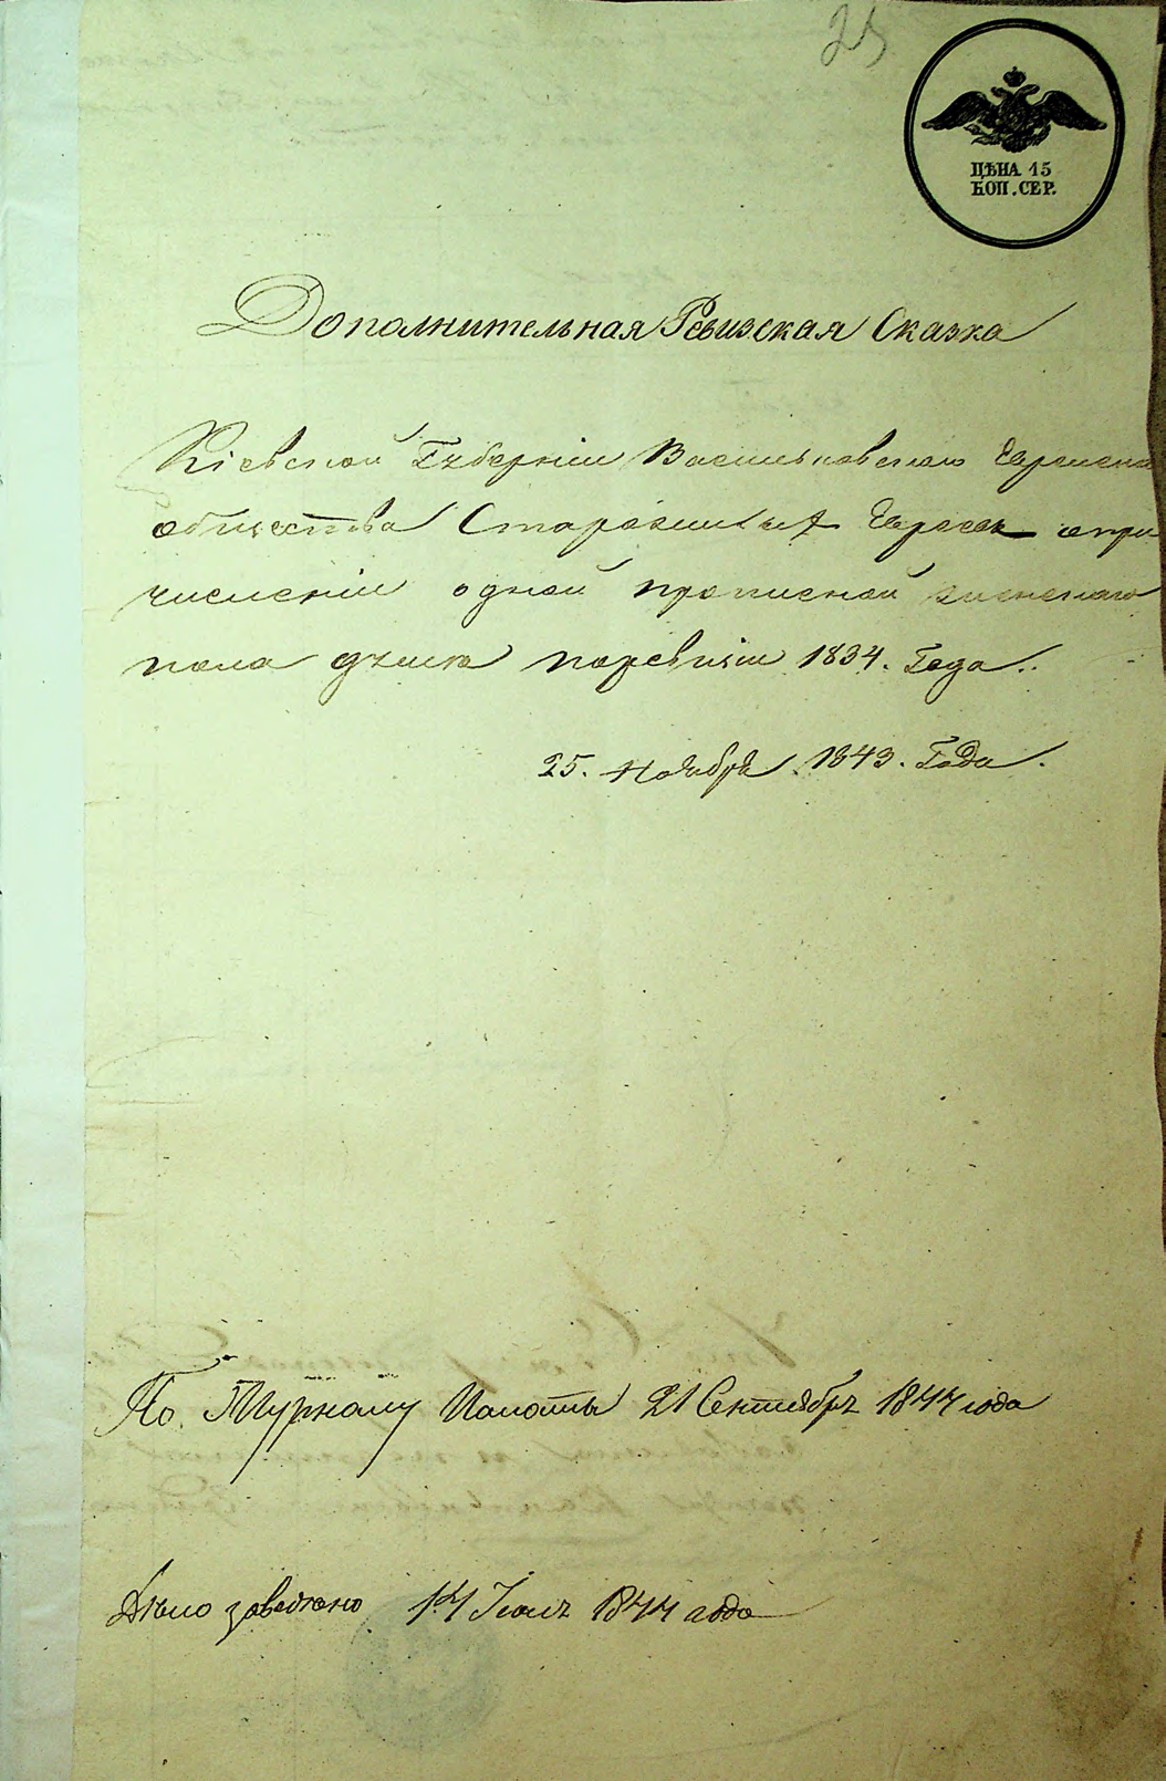 25
ЦѢНА 15
КОП. СЕР.
Дополнительная Ревизская Сказка
Кіевской Губерніи Васильковскаго Еврейска
общества Старозаконныхъ Евреевъ опри
численіи одной прописной женскаго
пола души поревизіи 1834. Года.
25. Ноября 1843. Года.
По Журналу Палаты 21 Сентября 1844 года
Дѣло заведено 14 Іюля 1844 года